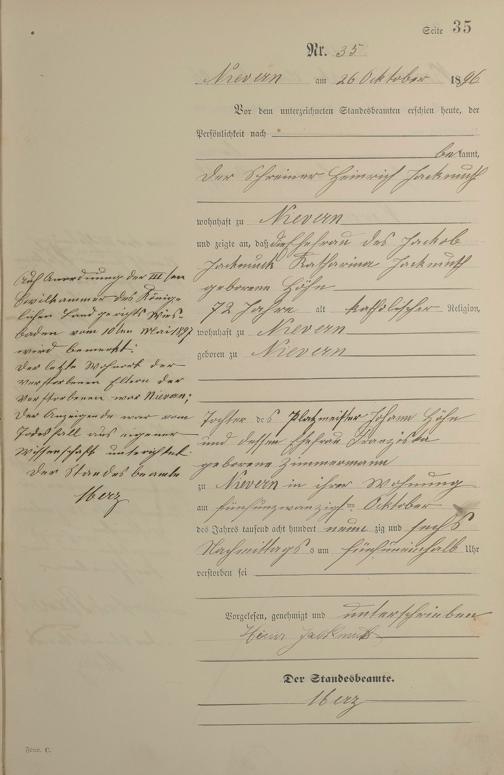 Seite 35
Nr. 35
Nievern am 26 Oktober 1896
Vor dem unterzeichneten Standesbeamten erschien heute, der
Persönlichkeit nach
bekannt,
der Schreiner Heinrich Jackmuth
wohnhaft zu Nievern
und zeigte an, daß die Ehefrau des Jakob
Jackmuth Katharina Jackmuth
geborene Höhn
72 Jahre alt katholischer Religion,
wohnhaft zu Nievern
geboren zu Nievern
Tochter des Platzmeister Johann Höhn
und dessen Ehefrau Franziska
geborene Zimmermann
zu Nievern in ihrer Wohnung
am fünfundzwanzigsten Oktober
des Jahres tausend acht hundert neunzig und sechs
Nachmittags um fünfeinhalb Uhr
verstorben sei
Vorgelesen, genehmigt und unterschrieben
Heinr Jackmuth
Der Standesbeamte.
Merz
Auf Anordnung der III ten
Civilkammer des König-
lichen Landgerichts Wies-
baden vom 10ten Mai 1897
wird bemerkt:
Der letzte Wohnort der
verstorbenen Eltern der
Verstorbenen war Nievern;
der Anzeigende war vom
Todesfall aus eigener
Wissenschaft unterrichtet
Der Standesbeamte
Merz
Form. C.